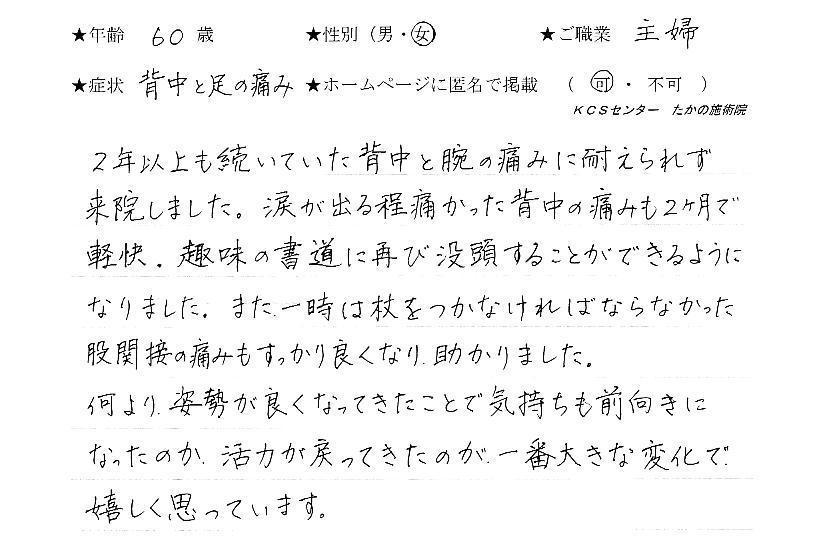 ★年齢 60 歳 ★性別（男・女） ★ご職業 主婦
★症状 背中と足の痛み ★ホームページに匿名で掲載 （ 可 ・ 不可 ）
KCSセンター たかの施術院
2年以上も続いていた背中と腕の痛みに耐えられず
来院しました。涙が出る程痛かった背中の痛みも2ヶ月で
軽快。趣味の書道に再び没頭することができるように
なりました。また、一時は杖をつかなければならなかった
股関接の痛みもすっかり良くなり、助かりました。
何より、姿勢が良くなってきたことで気持ちも前向きに
なったのか、活力が戻ってきたのが、一番大きな変化で、
嬉しく思っています。